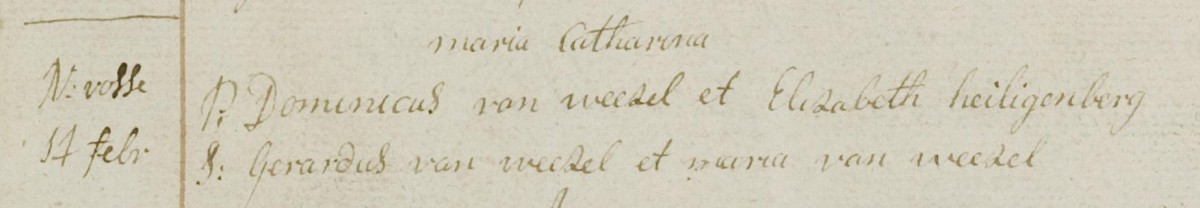 maria Catharina
N: vosse
P: Dominicus van weezel et Elizabeth heiligenberg
14 febr
S: Gerardus van weezel et maria van weezel